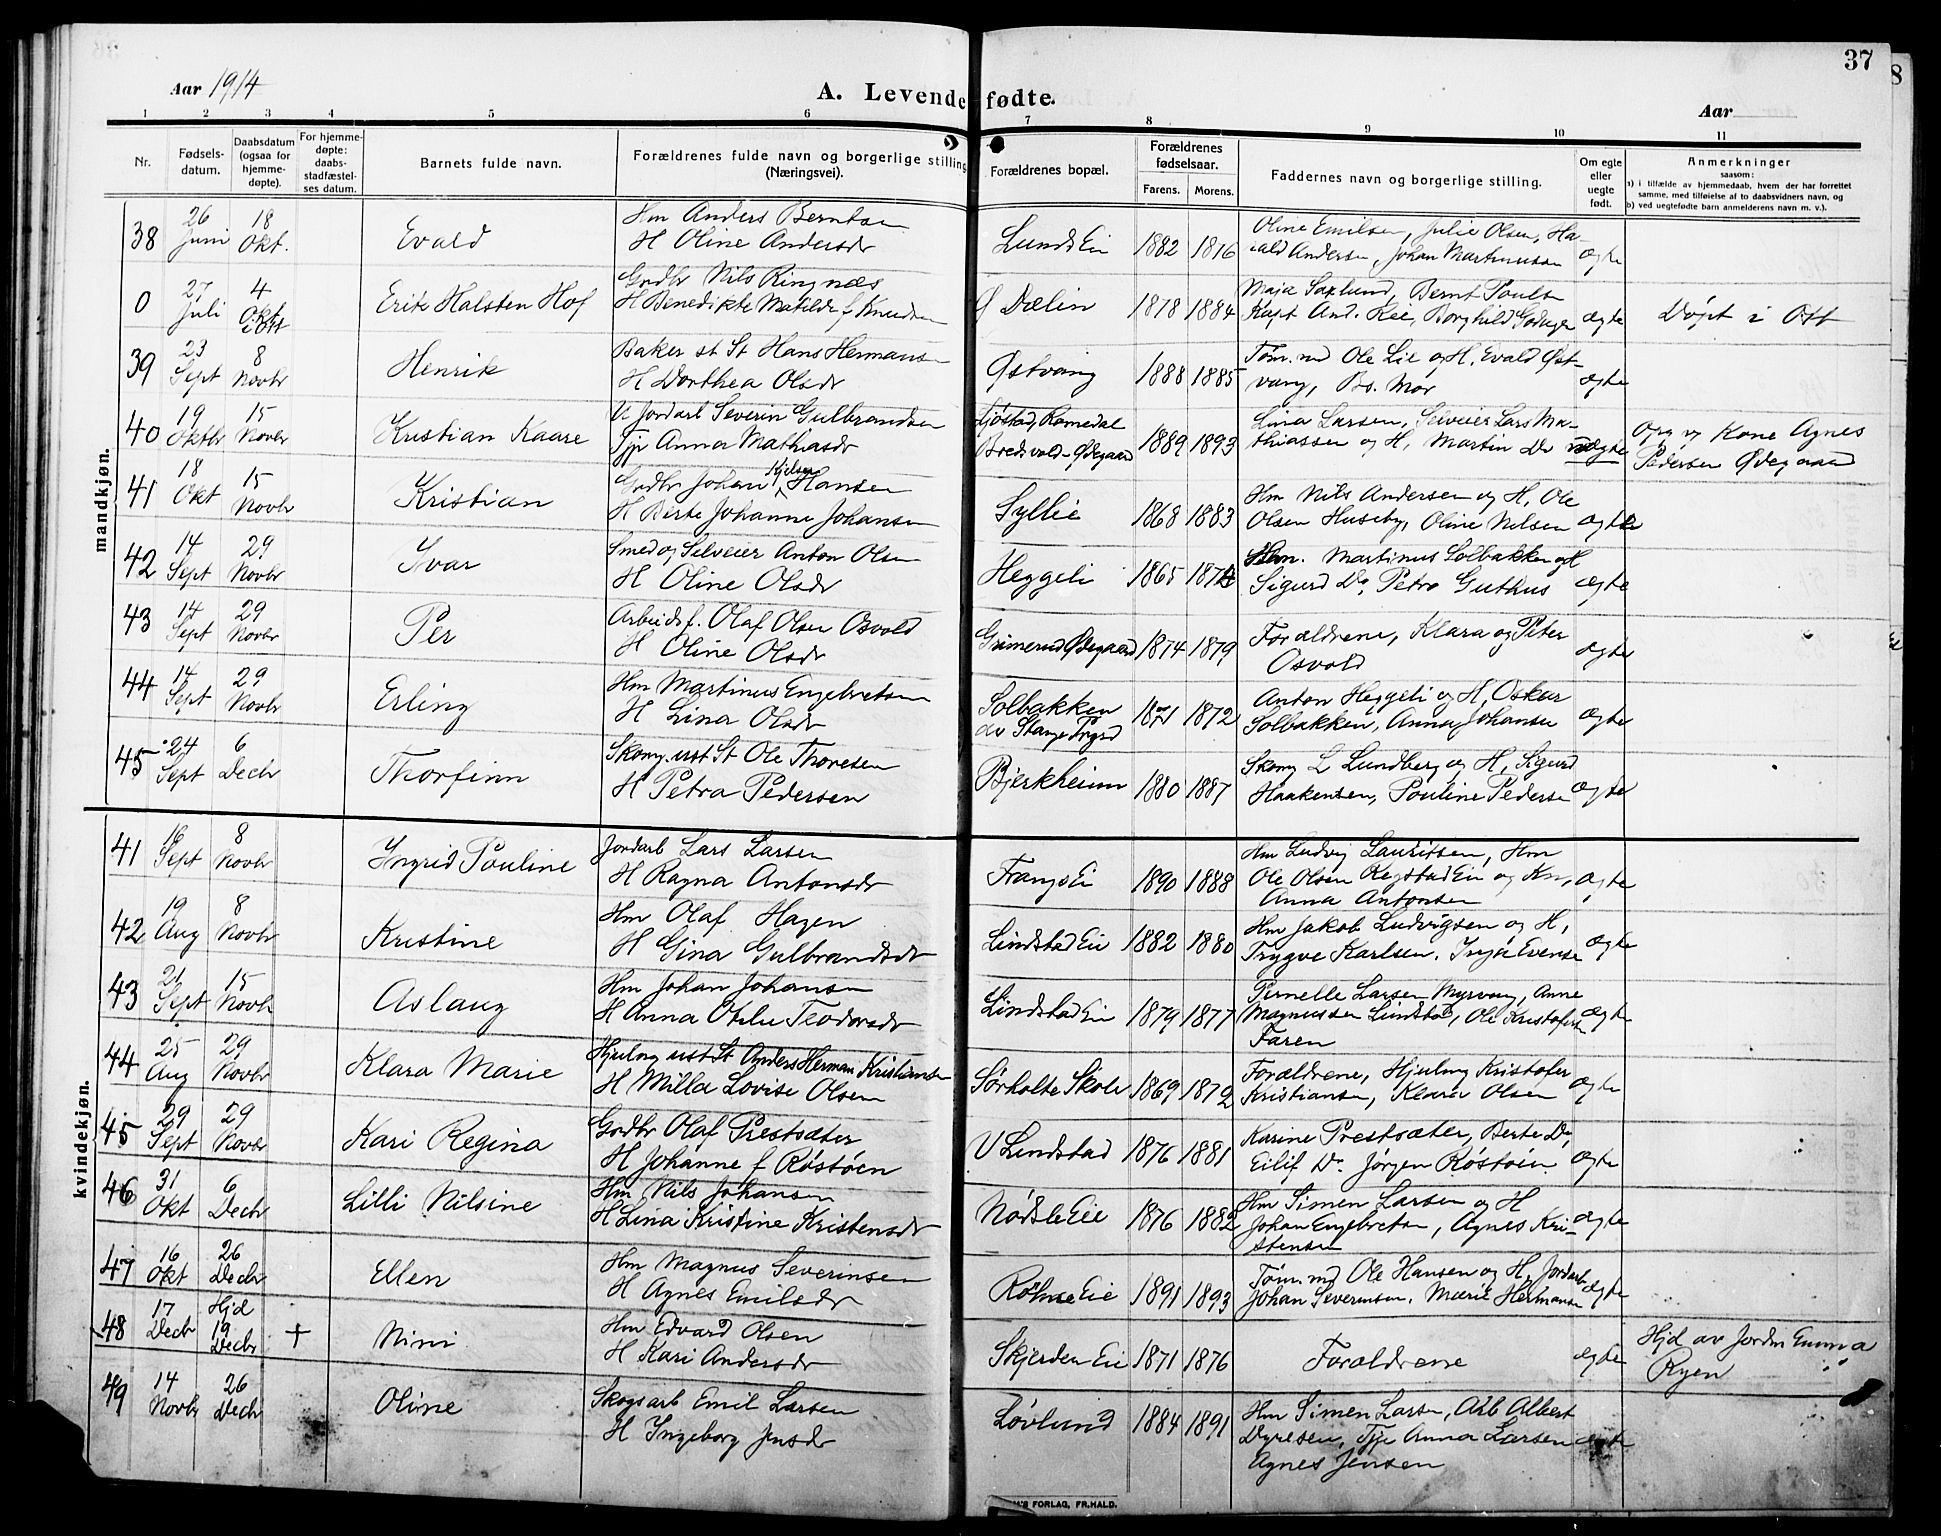 37
Aar 1914
A. Levende fødte.
Aar
1 2 3 4 5 6 7 8 9 10 11
Nr.
Fødsels-
datum.
Daabsdatum
(ogsaa for
hjemme-
døpte).
For hjemme-
døpte:
daabs-
stadfæstel-
ses datum.
Barnets fulde navn.
Forældrenes fulde navn og borgerlige stilling
(Næringsvei).
Forældrenes bopæl.
Forældrenes
fødselsaar.
Farens. Morens.
Faddernes navn og borgerlige stilling.
Om egte
eller
uegte
født.
Anmerkninger
saasom:
a) i tilfælde av hjemmedaab, hvem der har forrettet
samme, med tilføielse af to daabsvidners navn, og
b) ved uegtefødte barn anmelderens navn m. v.).
mandkjøn.
38 26 Juni 18 Okt. Evald
Hm Anders Berntsen
H Oline Andersdr
Lunds Ei 1882 1876
Oline Emilsen, Julie Olsen, Ha-
rald Andersen, Johan Martinusen
ægte
0 27 Juli 4 Okt Erik Halsten Hof
Grdbr Nils Ringnæs
H Benedikte Matilde f Knudsen
Ø Dælin 1878 1884
Maja Saxlund, Bernt Pouls
Kapt And. Ree, Borghild
ægte
Døpt i
39 23 Sept 8 Novbr Henrik
Baker st St Hans Hermansen
H Dorthea Olsdr
Østvang 1888 1885
Tøm.md Ole Lie og H. Evald Øst-
vang, Bs. Mor
ægte
40 19 Oktbr 15 Novbr Kristian Kaare
U Jordarb Severin Gulbrandsen
Tjp Anna Mathiasdr
Romedal
Bredsvold-Ødegaard
1889 1893
Lina Larsen, Selveier Lars Ma-
thiassen og H. Martin Do
uægte
Opg v Kone Agnes
Pedersen Ødegaard
41 18 Okt 15 Novbr Kristian
Grdbr Johan Kjelsen Hansen
H Berte Johanne Johansen
Syllie 1868 1883
Hm Nils Andersen og H, Ole
Olsen Huseby, Oline Nilsen
ægte
42 14 Sept 29 Novbr Ivar
Smed og Selveier Anton Olsen
H Oline Olsdr
Heggeli 1865 1874
Hm. Martinus Solbakken og H
Sigurd Do, Petra Guthus
ægte
43 14 Sept 29 Novbr Per
Arbeidsf. Olaf Olsen Osvold
H Oline Olsdr
Grimerud Ødegaard 1874 1879
Forældrene, Klara og Peter
Osvold
ægte
44 14 Sept 29 Novbr Erling
Hm Martinus Engebretsen
H Lina Olsdr
Solbakken
av Stange Prgrd
1871 1872
Anton Heggeli og H, Oskar
Solbakken, Anna Johansen
ægte
45 24 Sept 6 Decbr Thorfinn
Skomg. ust St Ole Thoresen
H Petra Pedersen
Bjerkheim 1880 1887
Skomg L Lundberg og H, Sigurd
Haakensen, Pouline Pedersen
ægte
kvindekjøn.
41 16 Sept 8 Novbr Ingrid Pouline
Jordarb Lars Larsen
H Ragna Antonsdr
Frangs Ei 1890 1888
Hm Ludvig Lauritsen, Hm
Ole Olsen Regstad Ei og Kn,
Anna Antonsen
ægte
42 19 Aug 8 Novbr Kristine
Hm Olaf Hagen
H Gina Gulbrandsdr
Lindstad Eie 1882 1880
Hm Jakob Ludvigsen og H,
Trygve Karlsen, Evensen
ægte
43 21 Sept 15 Novbr Aslaug
Hm Johan Johansen
H Anna Otelie Teodorsdr
Lindstad Ei 1879 1877
Pernelle Larsen Myrvang, Anne
Magnussen Lindstad, Ole Kristofersen
Faren
ægte
44 25 Aug 29 Novbr Klara Marie
Hjulmg ust St Anders Herman Kristiansen
H Milla Lovise Olsen
Sørholte Skole 1869 1872
Forældrene, Hjulmg Kristofer
Kristiansen, Klara Olsen
ægte
45 29 Sept 29 Novbr Kari Regina
Grdbr Olaf Prestsæter
H Johanne f Røstøen
V Lindstad 1876 1881
Karine Prestsæter, Berte Do,
Eilif Do. Jørgen Røstøen
ægte
46 31 Okt 6 Decbr Lilli Nilsine
Hm Nils Johansen
H Lina Kristine Kristensdr
Nøsle Eie 1876 1882
Hm Simen Larsen og H
Johan Engebretsen, Agnes Kri-
stensen
ægte
47 16 Okt 26 Decbr Ellen
Hm Magnus Severinsen
H Agnes Emilsdr
Røhne Eie 1891 1893
Tøm.md Ole Hansen og H, Jordarb
Johan Severinsen, Marie Hermansen
ægte
48 17 Decbr Hjd 19 Decbr + Nini
Hm Edvard Olsen
H Kari Andersdr
Skjerden Eie 1871 1876
Forældrene
ægte
Hjd av Jordm Emma
Ryen
49 14 Novbr 26 Decbr Oline
Skogsarb Emil Larsen
H Ingeborg Jensdr
Løvlund 1884 1891
Hm Simen Larsen, Arb Albert
Dyresen, Tjp Anna Larsen
Agnes Jensen
ægte
'S FORLAG, FR.HALD.